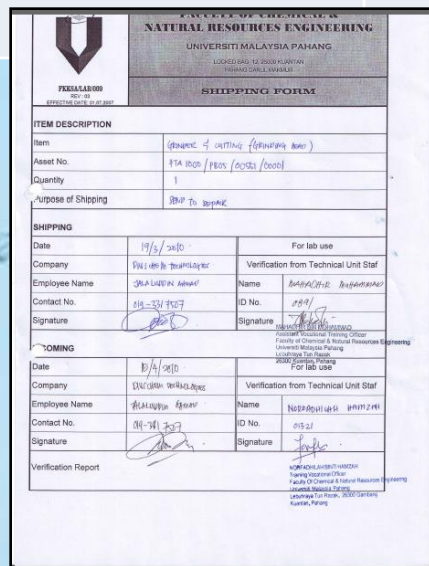 FACULTY OF CHEMICAL &
NATURAL RESOURCES ENGINEERING
UNIVERSITI MALAYSIA PAHANG
LOCKED BAG 12, 25000 KUANTAN
PAHANG DARUL MAKMUR
FKKSA/LAB/009
REV: 00
EFFECTIVE DATE: 01.07.2007
SHIPPING FORM
ITEM DESCRIPTION
Item
Asset No. FTA 1000/PB05/
Quantity 1
Purpose of Shipping SEND TO REPAIR
SHIPPING
Date 19/3/2010 For lab use
Company TECHNOLOGIES Verification from Technical Unit Staf
Employee Name JALALUDDIN AHMAD Name MAHADHIR MUHAMMAD
Contact No. 019-331 7507 ID No. 0891
Signature Signature
Assistant Vocational Training Officer
Faculty of Chemical & Natural Resources Engineering
Universiti Malaysia Pahang
Lebuhraya Tun Razak
26300 Kuantan, Pahang
COMING For lab use
Date 10/4/2010
Company TECHNOLOGIES Verification from Technical Unit Staf
Employee Name JALALUDDIN AHMAD Name NORFADHILAH HAMZAH
Contact No. ID No. 01321
Signature Signature
Verification Report NORFADHILAH BINTI HAMZAH
Training Vocational Officer
Faculty Of Chemical & Natural Resources Engineering
Universiti Malaysia Pahang
Lebuhraya Tun Razak, 26300 Gambang
Kuantan, Pahang